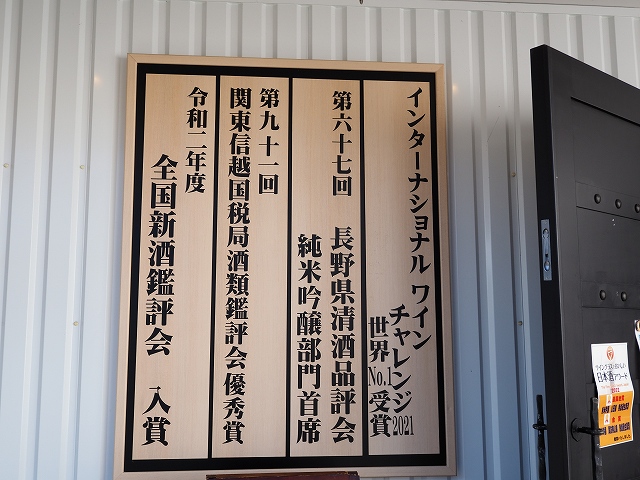 インターナショナル ワイン
チャレンジ2021
世界No.1受賞
第六十七回 長野県清酒品評会
純米吟醸部門首席
第九十一回
関東信越国税局酒類鑑評会 優秀賞
令和二年度
全国新酒鑑評会 入賞
ワイングラスでおいしい
日本酒アワード